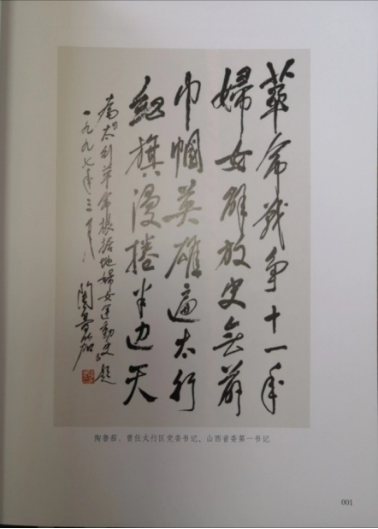 革命战争十一年
婦女解放史无前
巾帼英雄遍太行
红旗漫捲半边天
为太行革命根据地婦女运動史题
一九九七年三月八
陶鲁笳
陶鲁笳，曾任太行区党委书记、山西省委第一书记
001